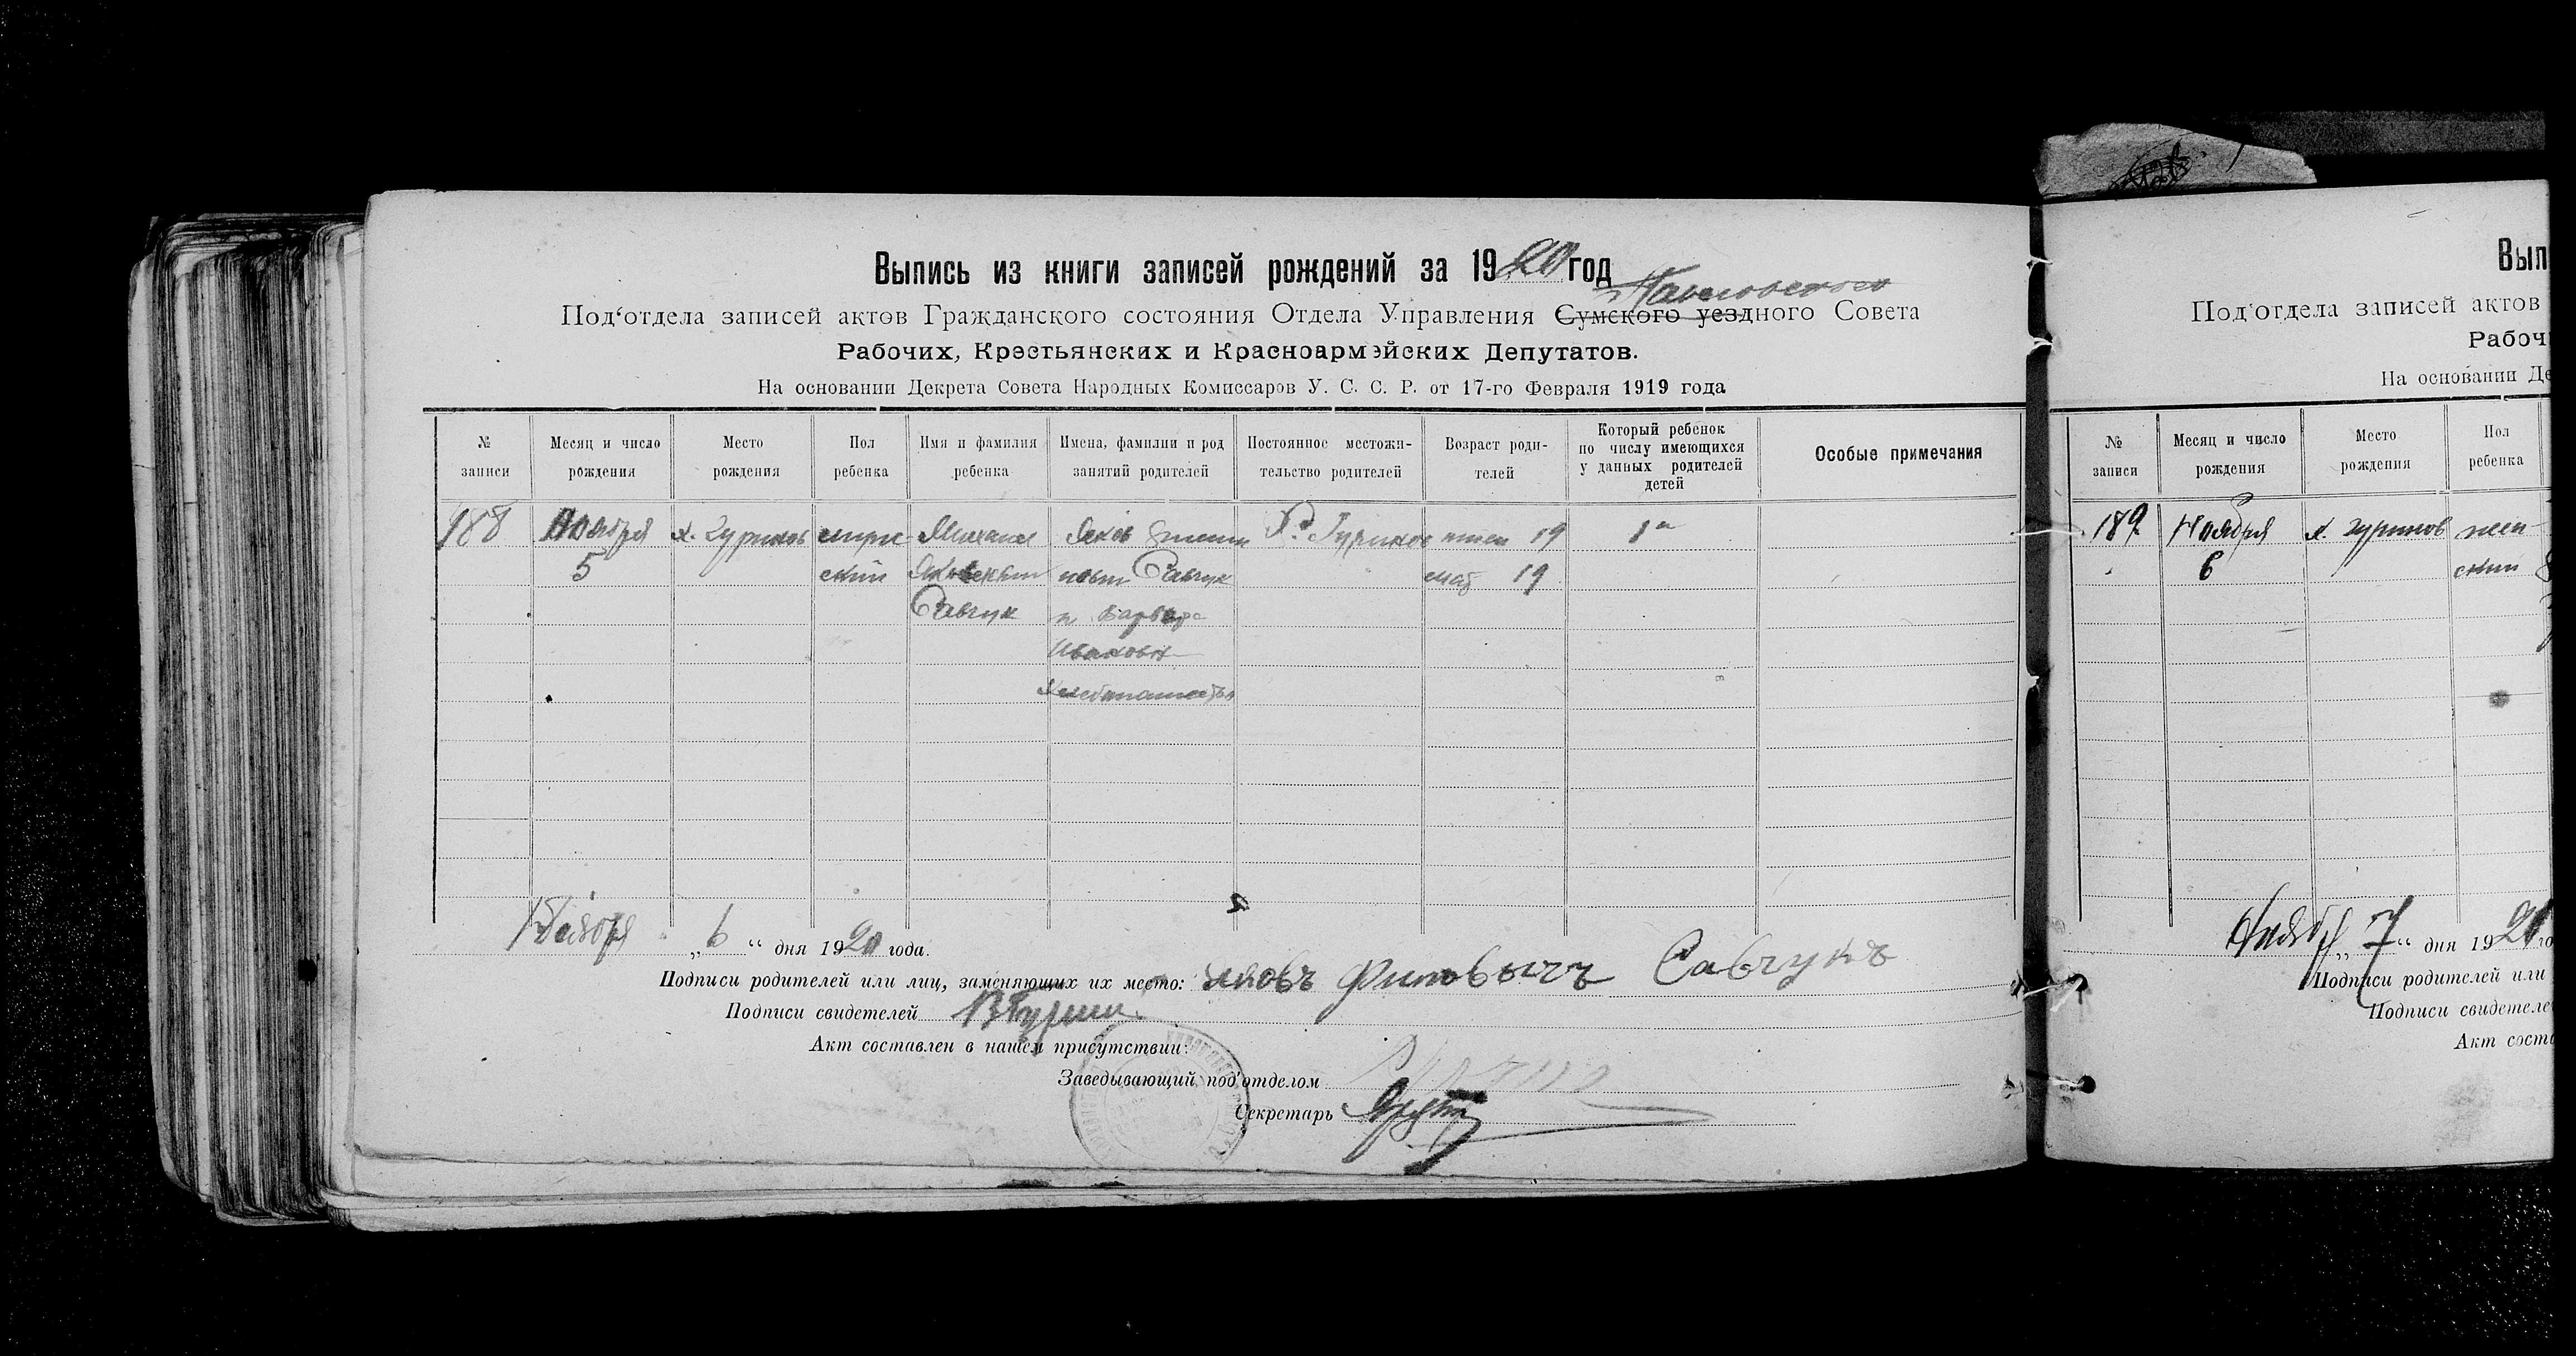 Выпись из книги записей рождений за 1920 год
Павловского
Под‘отдела записей актов Гражданского состояния Отдела Управления Сумского уездного Совета
Рабочих, Крестьянских и Красноармейских Депутатов.
На основании Декрета Совета Народных Комиссаров У. С. С. Р. от 17-го Февраля 1919 года
№ записи
Месяц и число рождения
Место рождения
Пол ребенка
Имя и фамилия ребенка
Имена, фамилии и род занятий родителей
Постоянное местожительство родителей
Возраст родителей
Который ребенок по числу имеющихся у данных родителей детей
Особые примечания
188 Ноября х. Гуринов Михаил Яков Х. Гуринов 19 1й
5 ский Яковлевич Савчук 19
Савчук и Варвара
Ивановна
Ноября „6“ дня 1920 года.
Подписи родителей или лиц, заменяющих их место: Яковъ Савчукъ
Подписи свидетелей
Акт составлен в нашем присутствии:
Заведывающий под‘отделом
Секретарь
Вып
Под‘отдела записей актов
Рабоч
На основании Де
№ записи
Месяц и число рождения
Место рождения
Пол ребенка
189 Ноября х. Гуринов
6 ский
„7“ дня 1920 го
Подписи родителей или
Подписи свидетеле
Акт соста